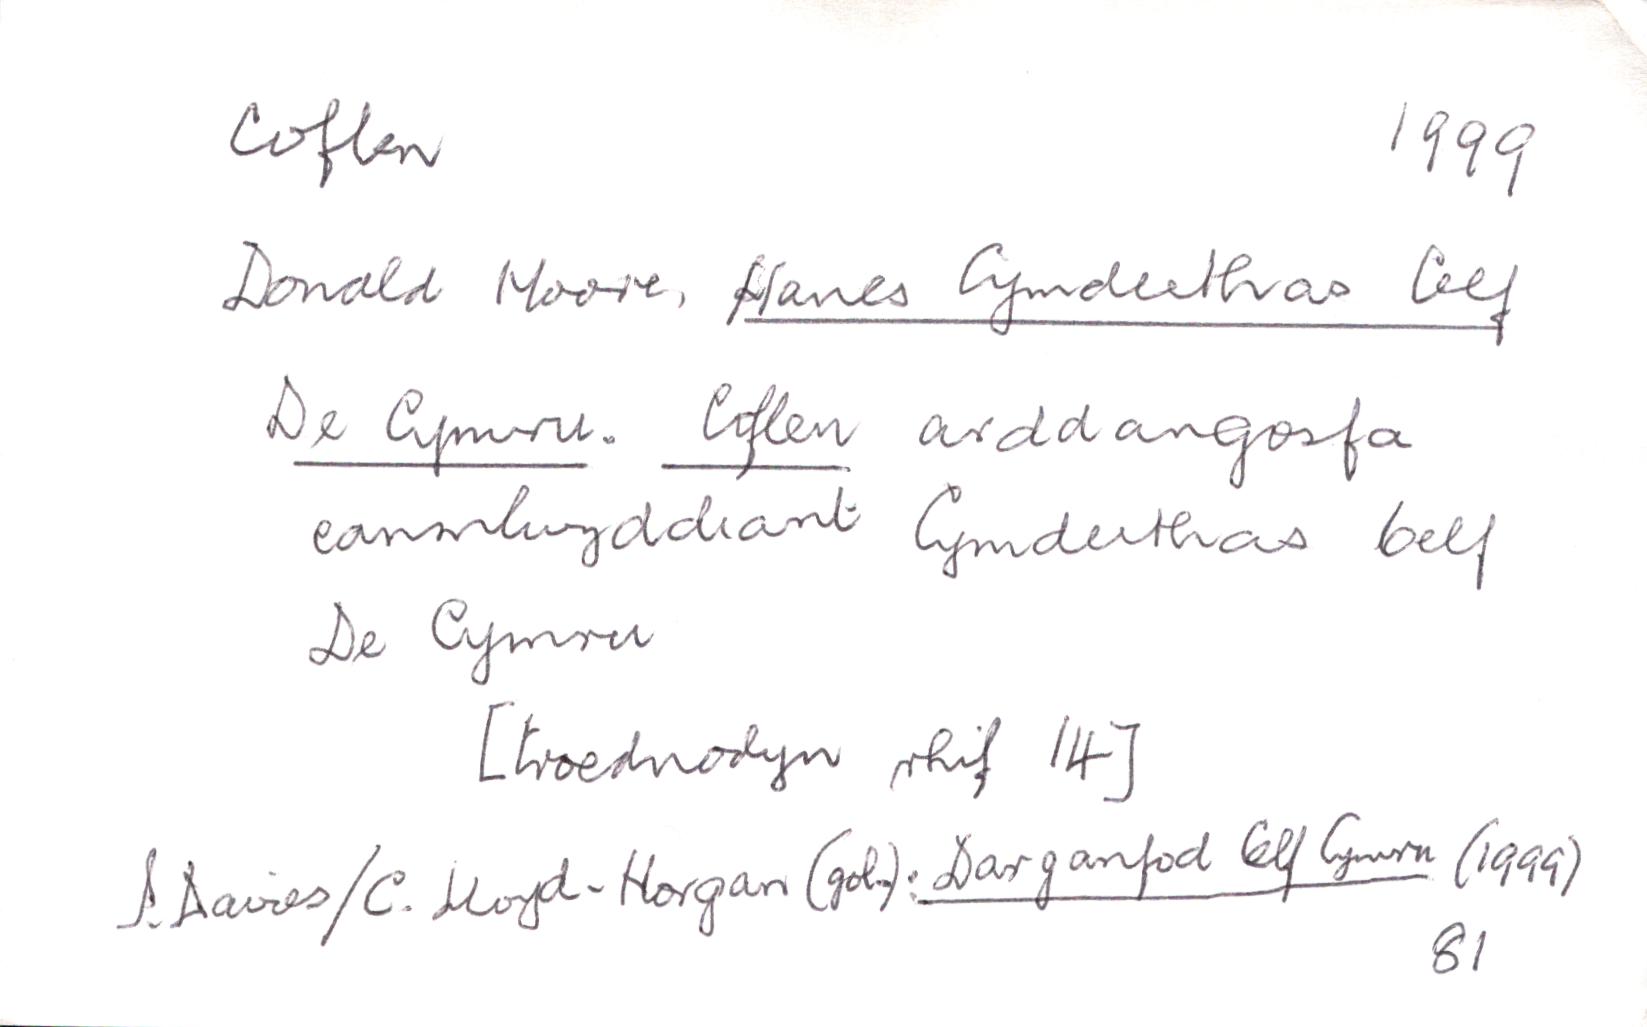 Coflen 1999
Donald Moore, Hanes Cymdeithas Celf
De Cymru. Coflen arddangosfa
canmlwyddiant Cymdeithas Celf
De Cymru
[troednodyn rhif 14]
I. Davies/C. Lloyd-Morgan (gol.): Darganfod Celf Cymru (1999)
81